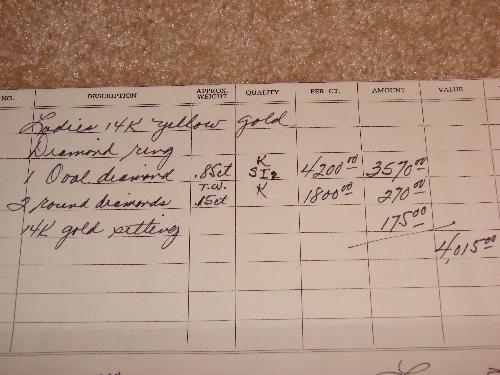 NO. DESCRIPTION APPROX. WEIGHT QUALITY PER CT. AMOUNT VALUE
Ladies 14K yellow gold
Diamond ring
1 Oval diamond .85ct K SI2 4200.00 3570.00
2 round diamonds T.W. .15ct K 1800.00 270.00
14K gold setting 175.00
4,015.00